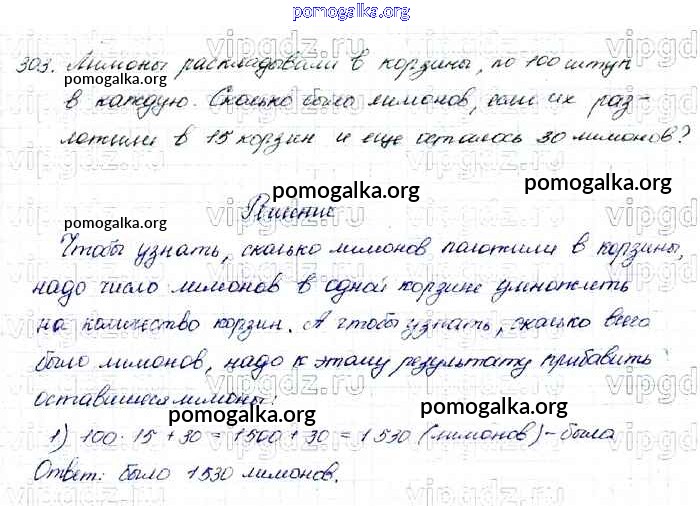 pomogalka.org
303. Лимоны раскладывали в корзины, по 100 штук
pomogalka.org
в каждую. Сколько было лимонов, если их раз-
ложили в 15 корзин и еще осталось 30 лимонов?
pomogalka.org
pomogalka.org
Решение
pomogalka.org
Чтобы узнать, сколько лимонов положили в корзины,
надо число лимонов в одной корзине умножить
на количество корзин. А чтобы узнать, сколько всего
было лимонов, надо к этому результату прибавить
оставшиеся лимоны:
pomogalka.org
pomogalka.org
1) 100 · 15 + 30 = 1500 + 30 = 1530 (лимонов) - было
Ответ: было 1530 лимонов.
pomogalka.org
pomogalka.org